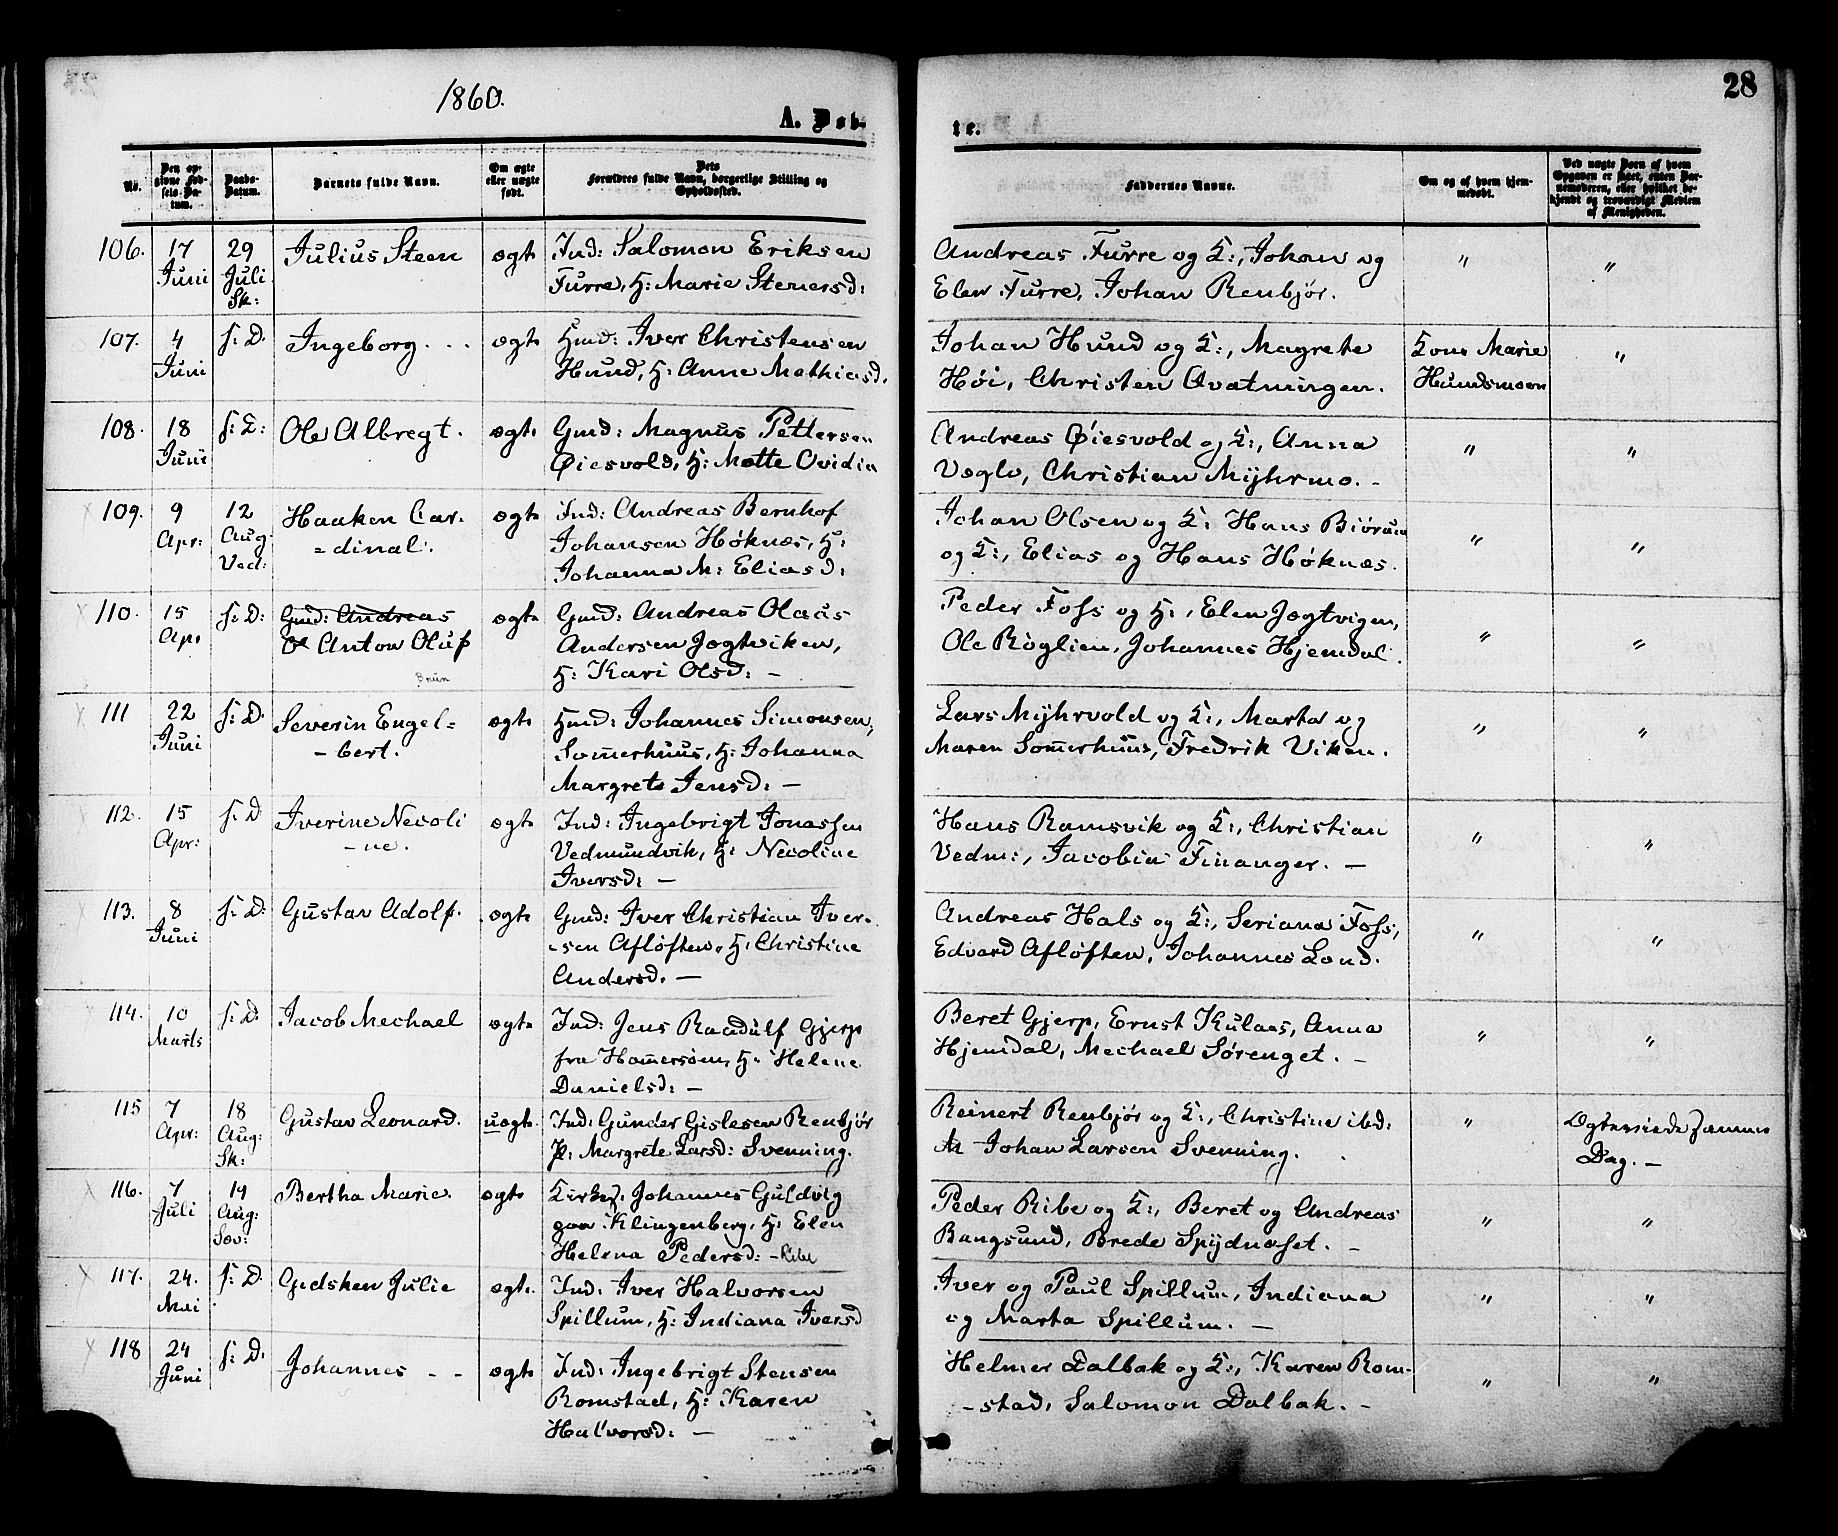 1860.
28
A. Døb-
te.
No.
Den op-
givne Fød-
sels-Da-
tum.
Daabs-
Datum.
Barnets fulde Navn.
Om ægte
eller uægte
født.
Dets
Forældres fulde Navn, borgerlige Stilling og
Opholdssted.
Faddernes Navne.
Om og af hvem hjem-
medøbt.
Ved uægte Børn af hvem
Opgaven er skeet, enten Bar-
nemoderen, eller hvilket be-
kjendt og troværdigt Medlem
af Menigheden.
106. 17 Juni 29 Juli Sk: Julius Steen ægte
Ind: Salomon Eriksen
Furre, H: Marie Stenersd:
Andreas Furre og K:, Johan og
Elen Furre, Johan Renbjør. " "
107. 4 Juni s: D. Ingeborg. - - ægte
Hmd: Iver Christensen
Hund, H: Anne Mathiasd.
Johan Hund og K:, Magrete
Høi, Christen Qvatningen.
Kone Marie
Hundsmoen "
108. 18 Juni s: D: Ole Albregt. ægte
Gmd: Magnus Pettersen
Øiesvold, H: Mette Ovidia
Andreas Øiesvold og K:, Anna
Vaglv, Christian Myhrmo. - " "
109. 9 Apr: 12 Aug. Ved: Haaken Car-
= dinal. ægte
Ind: Andreas Bernhof
Johansen Høknæs, H:
Johanna M: Eliasd:
Johan Olsen og K: Hans Biørum
og K:, Elias og Hans Høknæs. " "
110. 15 Apr s: D: Gmd: Andreas
Anton Oluf ægte
Brün
Gmd: Andreas Olaus
Andersen Jægtviken,
H: Kari Olsd: -
Peder Foss og H:, Elen Jægtvigen,
Ole Røglien, Johannes Hjemdal. " "
111 22 Juni s: D. Severin Engel=
- bert. ægte
Hmd: Johannes Simonsen,
Sommerhuus, H: Johanna
Margrete Jensd: -
Lars Myhrvold og K:, Marta og
Maren Sommerhuus, Fredrik Viken. " "
112. 15 Apr: s: D Iverine Necoli
- ne. ægte
Ind: Ingebrigt Jonassen
Vedmundvik, H: Necoline
Iversd: -
Hans Ramsvik og K:, Christian
Vedm:, Jacobia Finanger. - " "
113. 8 Juni s: D: Gustav Adolf. ægte
Gmd: Iver Christian Iver-
- sen Afløften, H: Christine
Andersd. -
Andreas Hals og K:, Seriana Foss,
Edvard Afløften, Johannes Lond. " "
114. 10 Marts s: D: Jacob Mechael ægte
Ind: Jens Raadulf Gjerp
fra Homersøm, H: Helene
Danielsd: -
Beret Gjerp, Ernst Kulaas, Anna
Hjemdal, Mechael Sørenget. - " "
115 7 Apr: 18 Aug: Sk: Gustav Leonard. uægte.
Ind: Gunder Gislesen Renbjør
P: Margrete Larsd: Svenning.
Reinert Renbjør og K:, Christine ibd:
Johan Larsen Svenning. "
Ægteviede samme
Dag. -
116. 7 Juli 19 Aug: Sæv: Bertha Marie. ægte
Kirkes: Johannes Guldvig
paa Klingenberg, H: Elen
Helena Pedersd: - Ribe
Peder Ribe og K:, Beret og Andreas
Bangsund, Brede Spydnæset. - " "
117. 24. Mai s: D. Gidsken Julie ægte.
Ind: Iver Halvorsen
Spillum, H: Indiana Iversd
Iver og Paul Spillum, Indiana
og Marta Spillum. - " "
118 24 Juni s: D. Johannes - - ægte
Ind: Ingebrigt Stensen
Romstad, H: Karen
Halvorsd: -
Helmer Dalbak og K:, Karen Rom-
- stad, Salomon Dalbak. - " "